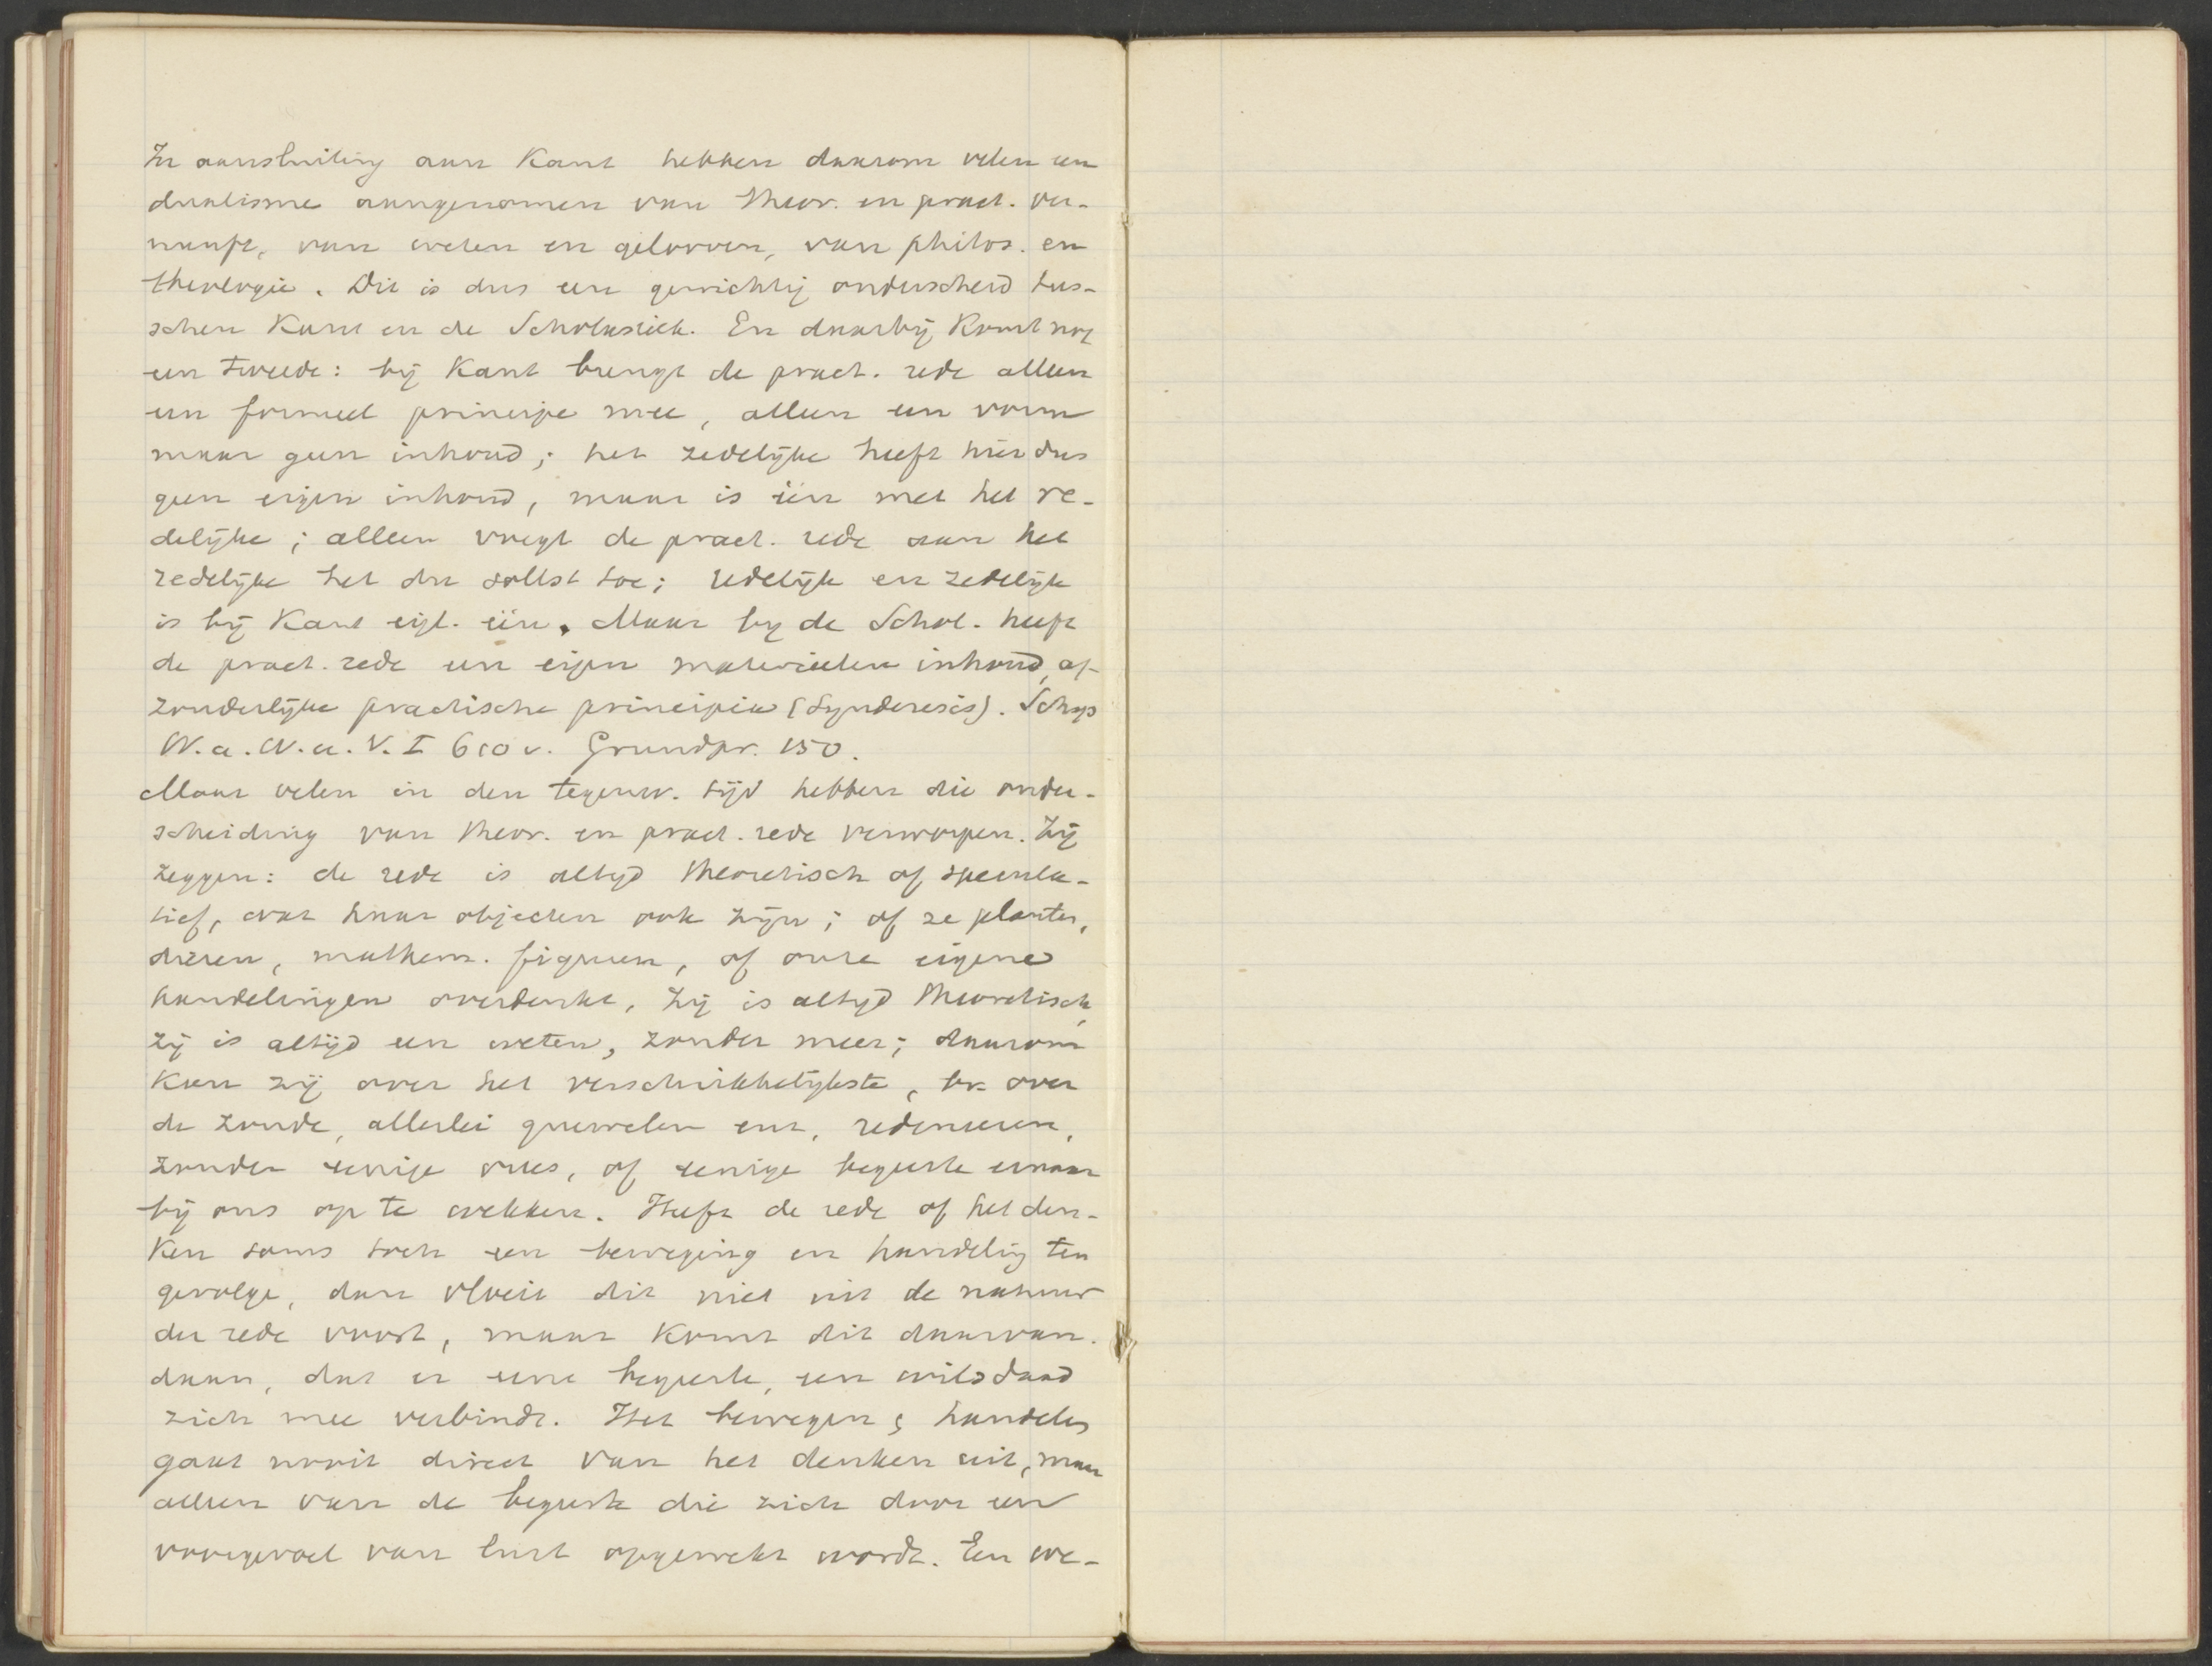 In aansluiting aan Kant hebben daarom velen een
dualisme aangenomen van theor. en pract. ver-
nunft, van weten en gelooven, van philos. en
theologie. Dit is dus een gewichtig onderscheid tus-
schen Kant en de Scholastiek. En daarbij komt nog
een tweede: bij Kant brengt de pract. rede alleen
een formeel principe mee, alleen een vorm
maar geen inhoud; het zedelijke heeft hier dus
geen eigen inhoud, maar is één met het re-
delijke; alleen voegt de pract. rede aan het
redelijke het du sollst toe; redelijk en zedelijk
is bij Kant eigl. één. Maar bij de Schol. heeft
de pract. rede een eigen materieelen inhoud, af-
zonderlijke practische principia (Synderesis). Schop
W. a. W. u. V. I 610 v. Grundpr. 150.
Maar velen in den tegenw. tijd hebben die onder-
scheiding van theor. en pract. rede verworpen. Zij
zeggen: de rede is altijd theoretisch of specula-
tief, wat haar objecten ook zijn; of ze planten,
dieren, mathem. figuren, of onze eigene
handelingen overdenkt, zij is altijd theoretisch,
zij is altijd een weten, zonder meer; daarom
kan zij over het verschrikkelijkste, bv. over
de zonde, allerlei gruwelen enz, redeneeren,
zonder eenige vrees, of eenige begeerte ernaar
bij ons op te wekken. Heeft de rede of het den-
ken soms toch een beweging en handeling ten
gevolge, dan vloeit dit niet uit de natuur
der rede voort, maar komt dit daarvan-
daan, dat er eene begeerte, een wilsdaad
zich mee verbindt. Het bewegen, handelen
gaat nooit direct van het denken uit, maar
alleen van de begeerte die zich door een
voorgevoel van lust opgewekt wordt. Een we-